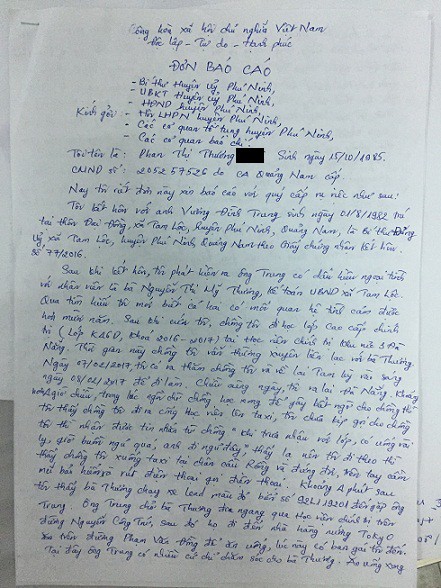 Cộng hòa xã hội chủ nghĩa Việt Nam
Độc lập - Tự do - Hạnh phúc
ĐƠN BÁO CÁO
- Bí thư Huyện ủy Phú Ninh,
- UBKT Huyện ủy Phú Ninh,
- HĐND huyện Phú Ninh,
Kính gởi: - Hội LHPN huyện Phú Ninh,
- Các cơ quan tố tụng huyện Phú Ninh,
- Các cơ quan báo chí.
Tôi tên là: Phan Thị Thương Sinh ngày 15/10/1985.
CMND số: 205257526 do CA Quảng Nam cấp.
Nay tôi viết đơn này xin báo cáo với quý cấp vụ việc như sau:
Tôi kết hôn với anh Vương Đình Trung sinh ngày 01/8/1982 trú
tại thôn Đại Đồng, xã Tam Lộc, huyện Phú Ninh, Quảng Nam, là Bí thư Đảng
ủy xã Tam Lộc, huyện Phú Ninh, Quảng Nam theo Giấy chứng nhận kết hôn
số 77/2016.
Sau khi kết hôn, tôi phát hiện ra ông Trung có dấu hiệu ngoại tình
với nhân viên là bà Nguyễn Thị Mỹ Thương, kế toán UBND xã Tam Lộc.
Qua tìm hiểu thì mới biết cả hai có mối quan hệ tình cảm được
hơn mười năm. Sau khi cưới tôi, chồng tôi đi học lớp Cao cấp chính
trị (Lớp KA6D, Khóa 2016-2017) tại Học viện chính trị khu vực 3 Đà
Nẵng. Thời gian này chồng tôi vẫn thường xuyên liên lạc với bà Thương.
Ngày 07/02/2017 tôi có ra thăm chồng tôi và về lại Tam Kỳ vào sáng
ngày 08/02/2017 để đi làm. Chiều cùng ngày, tôi ra lại Đà Nẵng. Khoảng
giờ chiều, trong lúc ngồi chờ chồng học xong để gây bất ngờ cho chồng thì
tôi thấy chồng tôi đi ra cổng học viện lên taxi, tôi chưa kịp gọi cho chồng
thì tôi nhận được tin nhắn từ chồng "
lý, giờ buồn ngủ quá, anh đi ngủ đây", thấy lạ nên tôi đi theo thì
thấy chồng tôi xuống taxi tại chân cầu Rồng và đứng đợi, trên tay cầm
mũ bảo hiểm và rút điện thoại gọi điện thoại. Khoảng phút sau
tôi thấy bà Thương chạy xe Lead màu đỏ biển số 92L1 19201 đến gặp ông
Trung. Ông Trung chở bà Thương đèo ngang qua Học viện chính trị trên
đường Nguyễn Công Trứ, sau đó họ đi đến nhà hàng nướng TOKYO
trên đường Phạm Văn Đồng để ăn uống, lúc này có bạn gái tôi đến.
Tại đây ông Trung có nhiều cử chỉ chăm sóc cho bà Thương. Ăn uống xong